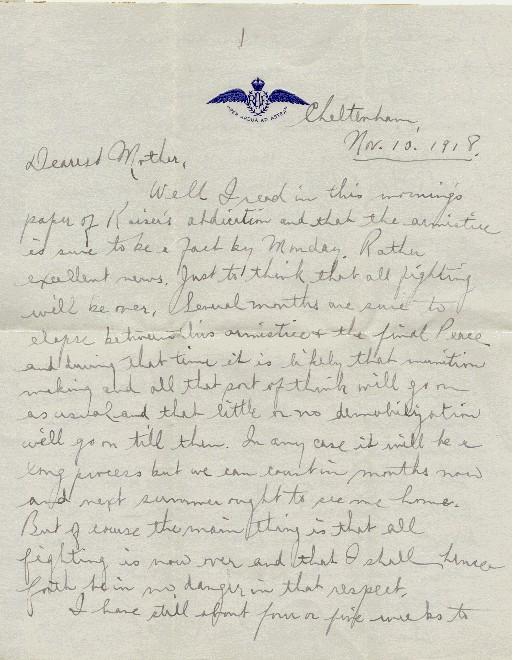 1
RFC
PER ARDUA AD ASTRA
Cheltenham,
Nov. 10. 1918.
Dearest Mother,
Well I read in this morning's
paper of Kaiser's abdiction and that the armistice
is sure to be a fact by Monday. Rather
excellent news. Just to think that all fighting
will be over. Several months are sure to
elapse between this armistice & the final Peace
and during that time it is likely that munition
making and all that sort of think will go on
as usual and that little or no demobilization
will go on till then. In any case it will be a
long process but we can count in months now
and next summer ought to see me home.
But of course the main thing is that all
fighting is now over and that I shall hence
forth be in no danger in that respect.
I have still about four or five weeks to